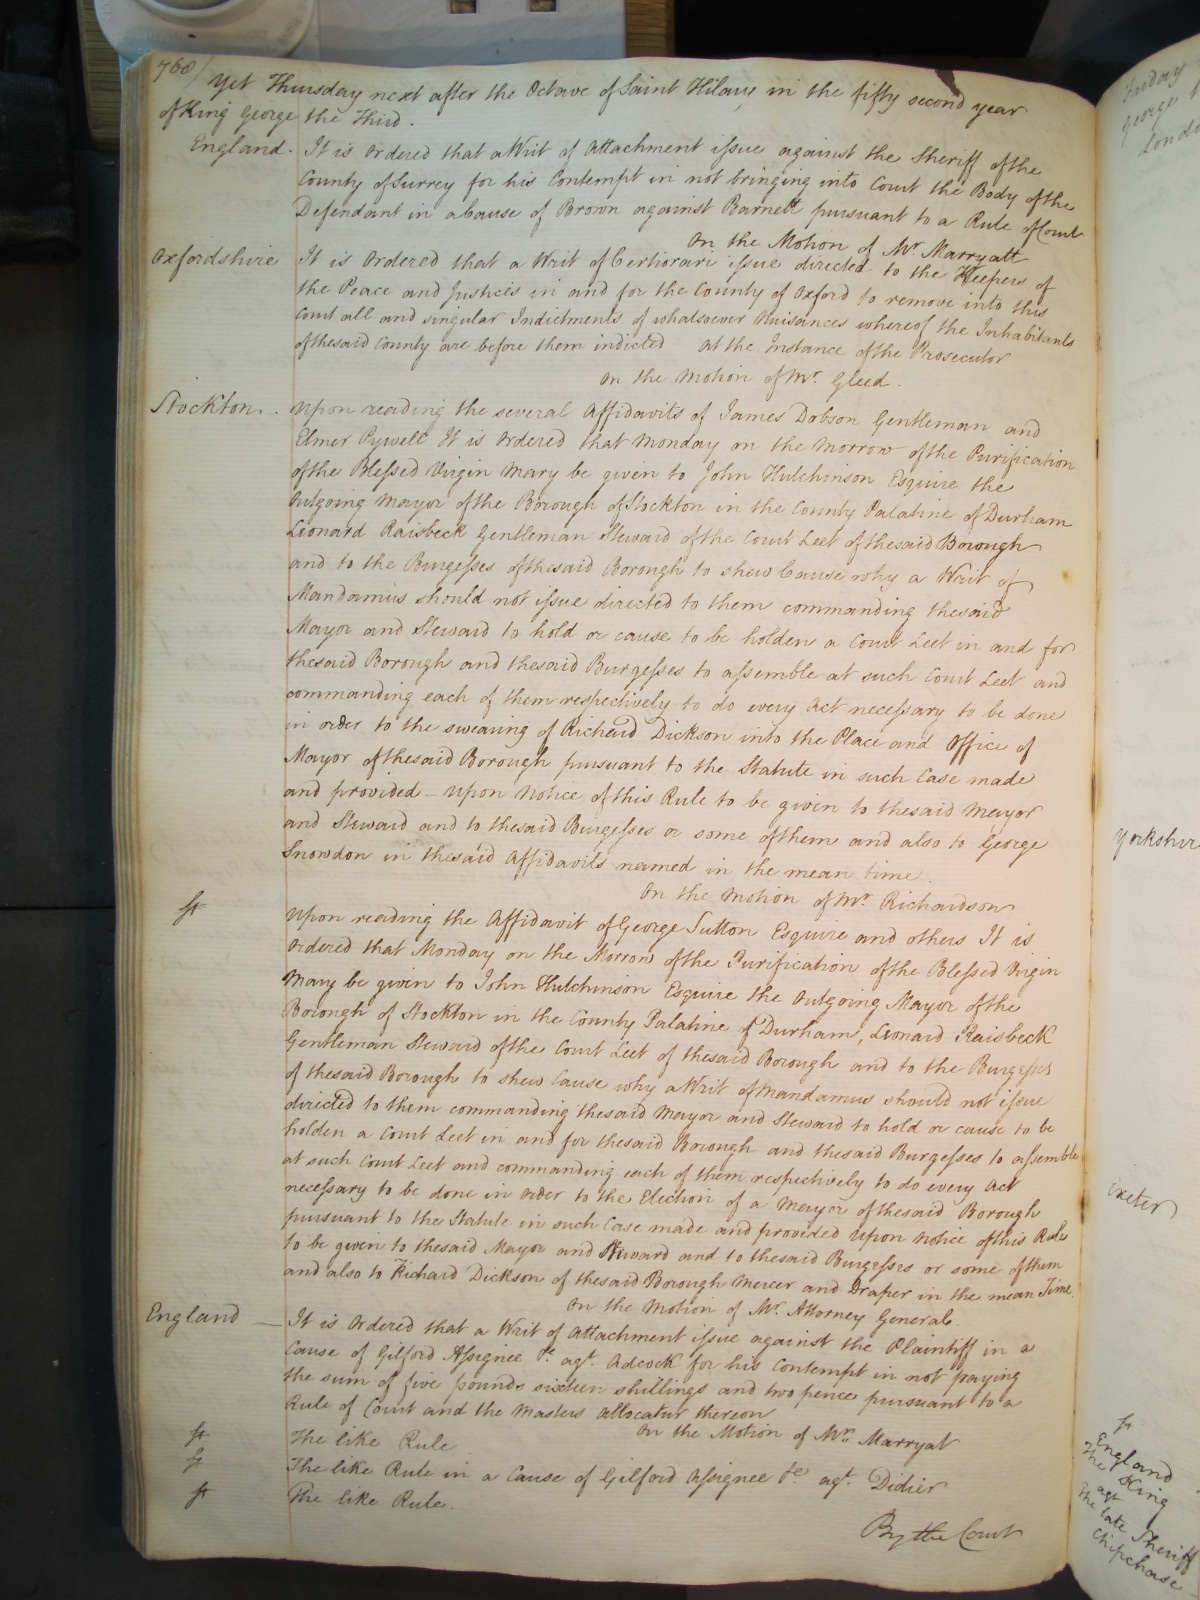 768/
Yet Thursday next after the Octave of Saint Hilary in the fifty second year
of King George the Third.
England. It is Ordered that a Writ of Attachment issue against the Sheriff of the
County of Surrey for his Contempt in not bringing into Court the Body of the
Defendant in a Cause of Brown against Barnett pursuant to a Rule of Court
On the Motion of Mr. Marryatt
Oxfordshire It is Ordered that a Writ of Certiorari issue directed to the Keepers of
the Peace and Justices in and for the County of Oxford to remove into this
Court all and singular Indictments of whatsoever Nuisances whereof the Inhabitants
of the said County are before them indicted At the Instance of the Prosecutor
On the Motion of Mr. Gleed.
Stockton. Upon reading the several Affidavits of James Dobson Gentleman and
Elmer Pywell It is Ordered that Monday on the Morrow of the Purification
of the Blessed Virgin Mary be given to John Hutchinson Esquire the
Outgoing Mayor of the Borough of Stockton in the County Palatine of Durham
Leonard Raisbeck Gentleman Steward of the Court Leet of the said Borough
and to the Burgesses of the said Borough to shew Cause why a Writ of
Mandamus should not issue directed to them commanding the said
Mayor and Steward to hold or cause to be holden a Court Leet in and for
the said Borough and the said Burgesses to assemble at such Court Leet and
commanding each of them respectively to do every Act necessary to be done
in order to the swearing of Richard Dickson into the Place and Office of
Mayor of the said Borough pursuant to the Statute in such Case made
and provided – Upon Notice of this Rule to be given to the said Mayor
and Steward and to the said Burgesses or some of them and also to George
Snowdon in the said Affidavits named in the mean time.
On the Motion of Mr. Richardson
Upon reading the Affidavit of George Sutton Esquire and others It is
Ordered that Monday on the Morrow of the Purification of the Blessed Virgin
Mary be given to John Hutchinson Esquire the Outgoing Mayor of the
Borough of Stockton in the County Palatine of Durham, Leonard Raisbeck
Gentleman Steward of the Court Leet of the said Borough and to the Burgesses
of the said Borough to shew Cause why a Writ of Mandamus should not issue
directed to them commanding the said Mayor and Steward to hold or cause to be
holden a Court Leet in and for the said Borough and the said Burgesses to assemble
at such Court Leet and commanding each of them respectively to do every Act
necessary to be done in order to the Election of a Mayor of the said Borough
pursuant to the Statute in such Case made and provided Upon Notice of this Rule
to be given to the said Mayor and Steward and to the said Burgesses or some of them
and also to Richard Dickson of the said Borough Mercer and Draper in the mean Time.
On the Motion of Mr. Attorney General.
England – It is Ordered that a Writ of Attachment issue against the Plaintiff in a
Cause of Gilford Assignee &c. agt. Adcock for his Contempt in not paying
the sum of five pounds sixteen shillings and two pence pursuant to a
Rule of Court and the Masters Allocatur thereon
On the Motion of Mr. Marryat
The like Rule
The like Rule in a Cause of Gilford Assignee &c. agt. Didier
The like Rule.
By the Court
Friday
George
London
Yorkshire
Exeter
England
The King
agt
The late Sheriff
Chipchase